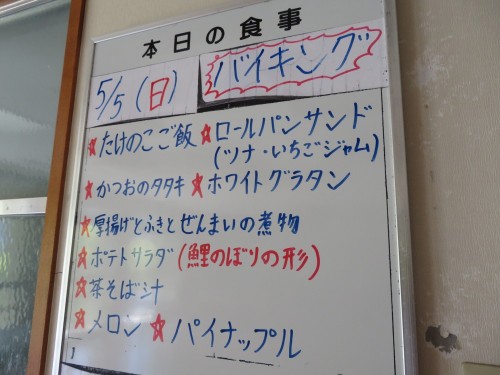 本日の食事
5/5(日) バイキング
★たけのこご飯 ★ロールパンサンド
(ツナ・いちごジャム)
★かつおのタタキ ★ホワイトグラタン
★厚揚げとふきとぜんまいの煮物
★ポテトサラダ(鯉のぼりの形)
★茶そば汁
★メロン ★パイナップル